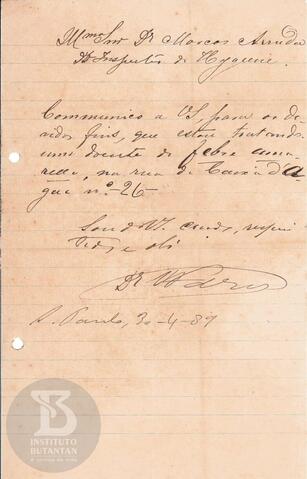 Illmo Snr Dr Marcos Arruda
D. Inspector de Hygiene.
Communico a VS, para os de
vidos fins, que estou tratando
um doente de febre ama
rella, na rua da Caixa d'A
gua nº 26
Sou de VS. creado, respei
tador e obr
Dr
S. Paulo, 30-4-89
INSTITUTO
BUTANTAN
A serviço da vida